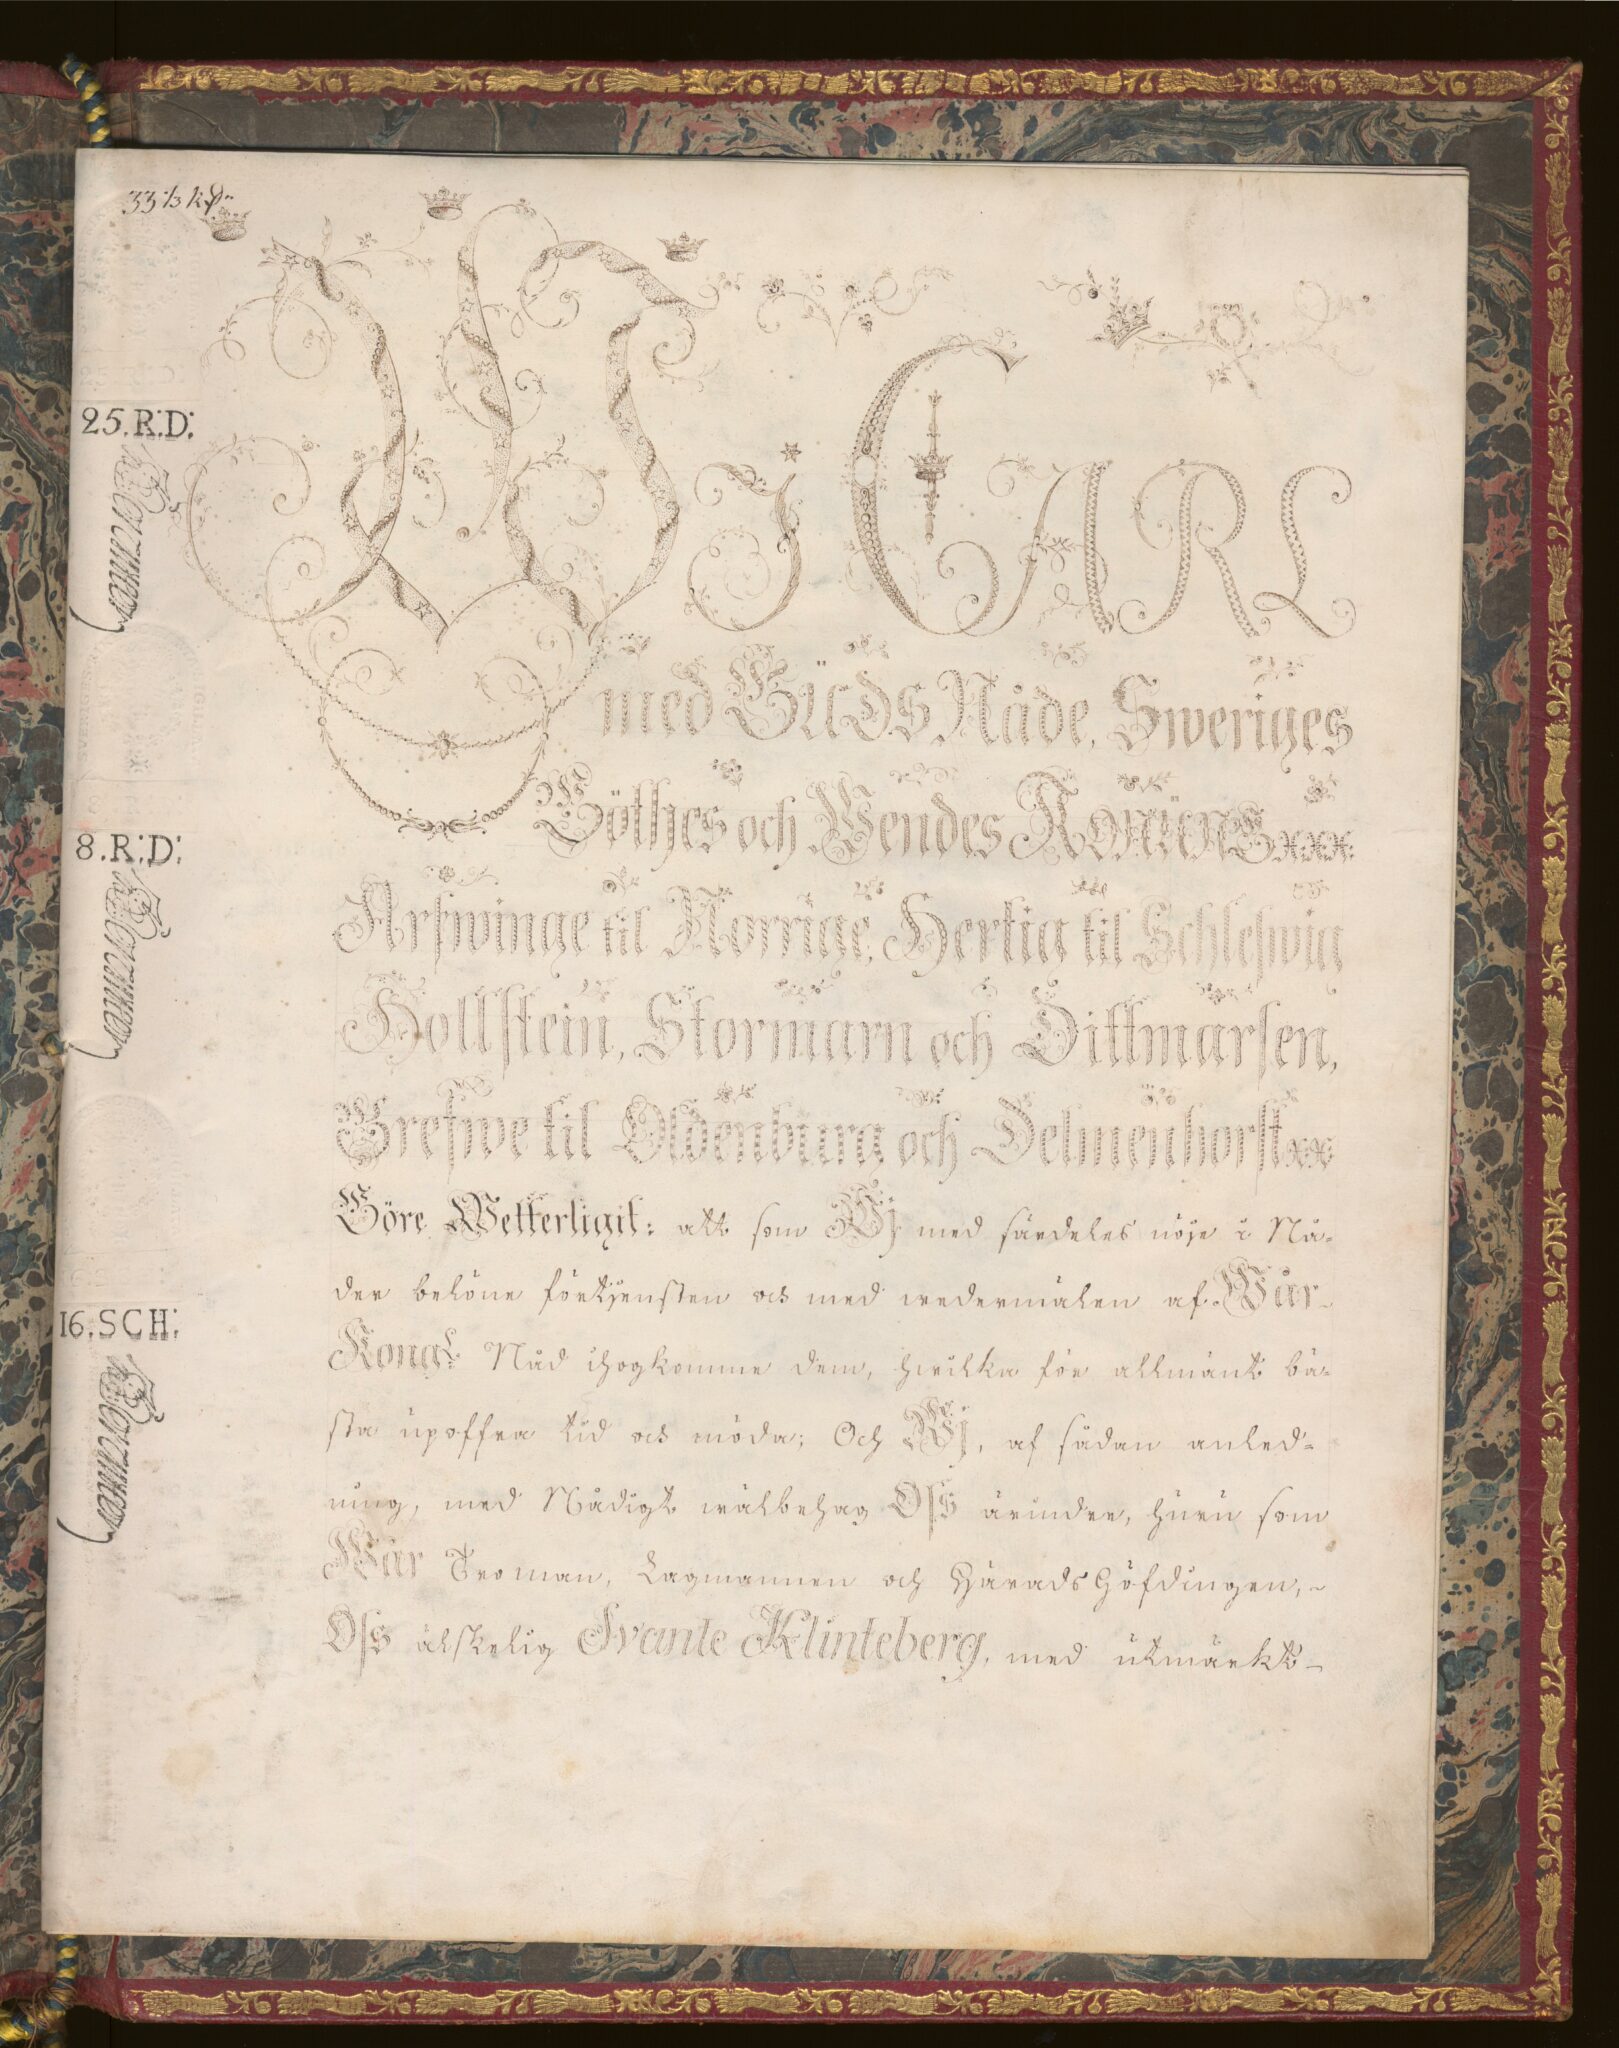 33 1/3 k
25. R:D:
8. R:D:
16. SCH:
Wi CARL
med Guds Nåde, Sweriges
Göthes och Wendes Konung xxx:
Arfwinge til Norrige, Hertig til Schleswig
Hollstein, Stormarn och Dittmarsen,
Grefwe til Oldenburg och Delmenhorst xx:
Göre Wetterligit: att som Wj med särdeles nöje i Nå-
der belöne förtjensten och med wedermälen af Wår
Kongl: Nåd ihogkomme dem, hwilka för allmänt bä-
sta upoffra tid och möda; Och Wj, af sådan anled-
ning, med Nådigt wälbehag Oss ärindre, huru som
Wår Troman, Lagmannen och HäradsHöfdingen,
Oss älskelig Svante Klinteberg, med utmärkt